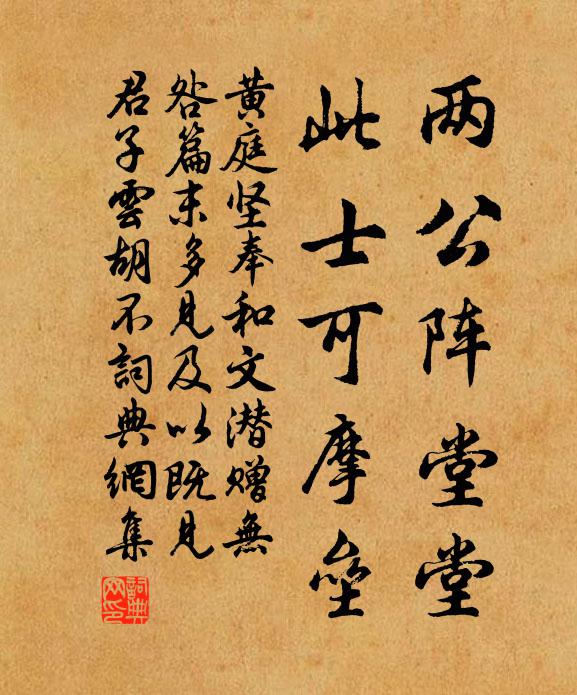 两公阵堂堂
此士可摩垒
黄庭坚奉和文潜赠無
咎篇末多見及以既見
君子雲胡不詞典網集
詞典網印